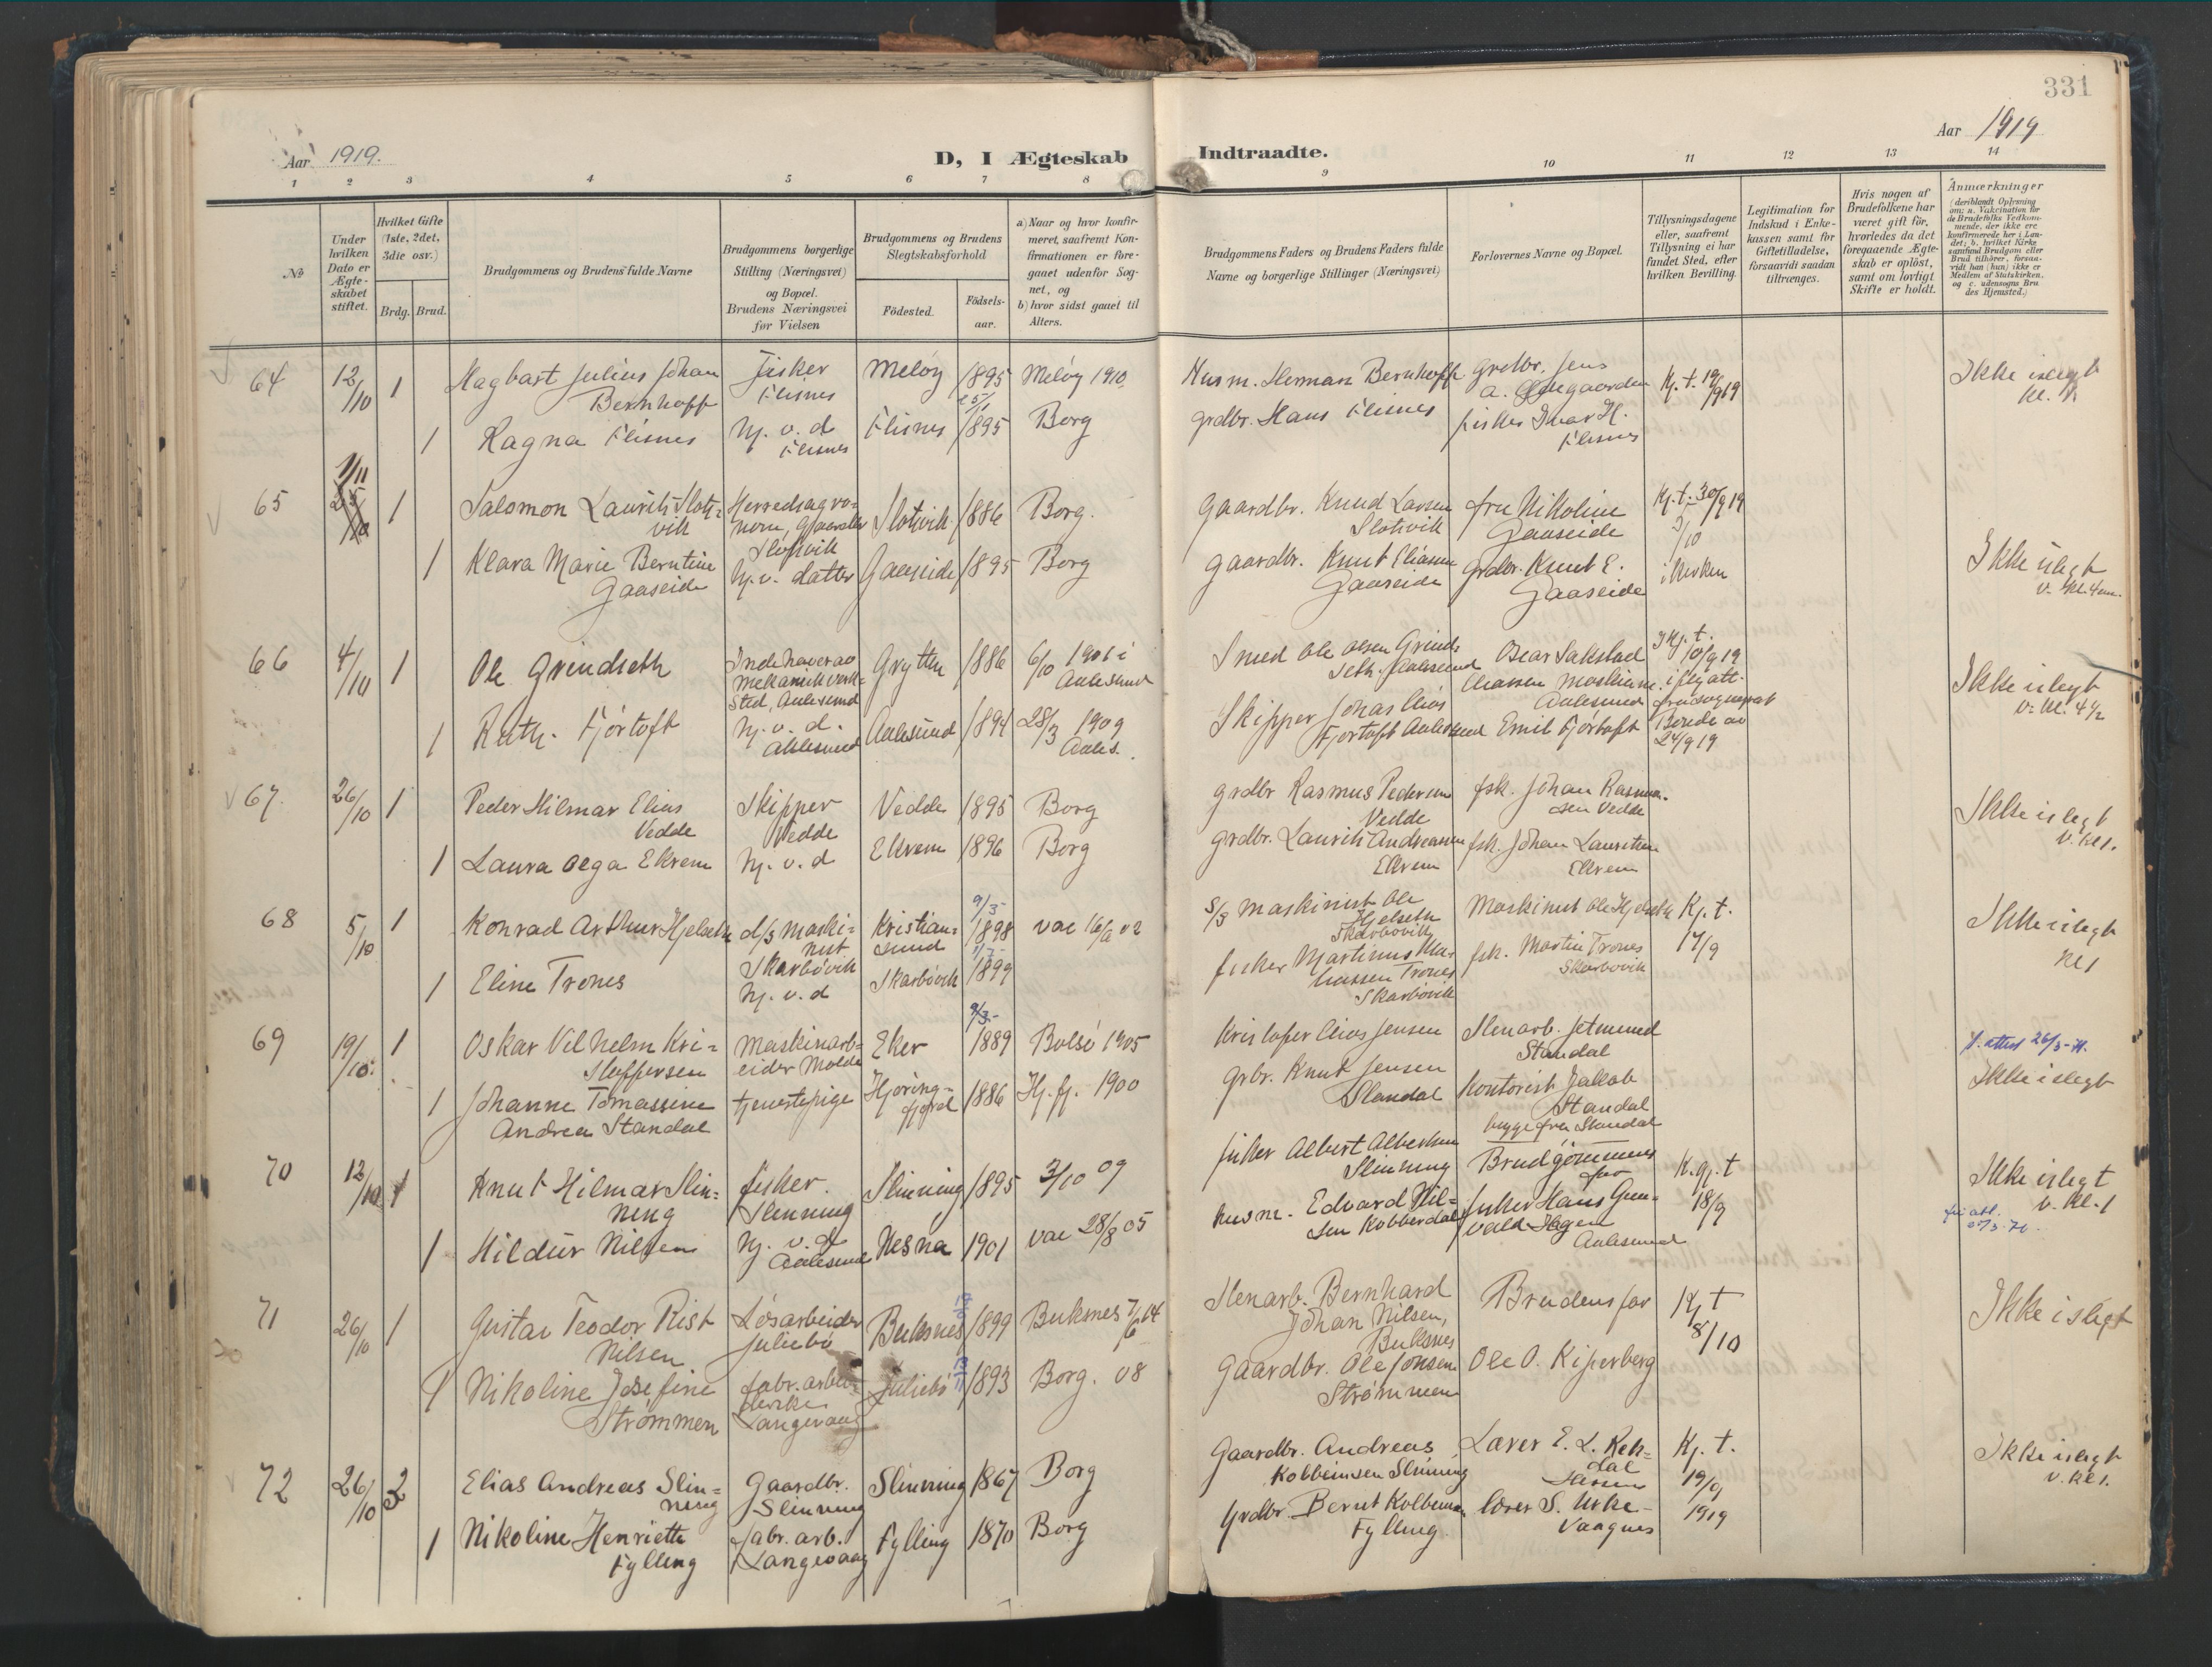 331
Aar 1919.
Aar 1919
D, I Ægteskab
Indtraadte.
1 2 3 4 5 6 7 8
9 10 11 12 13 14
No
Under hvilken Dato er Ægteskabet stiftet.
Hvilket Gifte (1ste, 2det, 3die osv.)
Brdg. Brud.
Brudgommens og Brudens fulde Navne
Brudgommens borgerlige Stilling (Næringsvei) og Bopæl. Brudens Næringsvei før Vielsen
Brudgommens og Brudens Slegtskabsforhold
Födested.
Födselsaar.
a) Naar og hvor konfirmeret, saafremt Konfirmationen er foregaaet udenfor Sognet, og
b) hvor sidst gaaet til Alters.
Brudgommens Faders og Brudens Faders fulde Navne og borgerlige Stillinger (Næringsvei)
Forlovernes Navne og Bopæl.
Tillysningsdagene eller, saafremt Tillysning ei har fundet Sted, efter hvilken Bevilling.
Legitimation for Indskud i Enkekassen samt for Giftetilladelse, forsaavidt saadan tiltrænges.
Hvis nogen af Brudefolkene har været gift før, hvorledes da det foregaaende Ægteskab er oplöst, samt om lovligt Skifte er holdt.
Anmærkninger
64 12/10 1 Hagbart Julius Johan Bernhoff
Fisker Flisnes
Meløy 1895 Meløy 1910
Husm. Herman Bernhoff
Grdbr. Jens A.
Kj. t. 19/9 19
Ikke islegt
1 Ragna Flisnes
Hj. v. d Flisnes
Flisnes 25/1 1895 Borg
grdbr. Hans Flisnes
fisker Ivar H. Flisnes
65 1/11 1 Salomon Laurits Slotsvik
Slotsvik 1886 Borg.
Gaardbr. Knud Larsen Slotsvik
fru Nikoline Gaaseide
Kj. t. 30/9 19
1 Klara Marie Berntine Gaaseide
Hj. v. datter Gaaseide 1895 Borg
gaardbr. Knut Eliassen Gaaseide
grdbr. Knut E. Gaaseide
i kirken
Ikke islegt
66 4/10 1 Ole Grindseth
Indehaver av mekanisk verksted, Aalesund
Grytten 1886 6/10 1901 i Aalesund
Smed Ole Olsen Grindseth, Aalesund
Oscar Sakstad
Kj. t. 10/9 19
Ikke islegt
v. kl. 4 1/2
1 Ruth Fjörtoft
Hj. v. d. Aalesund
Aalesund 1894 28/3 1909 Aales.
Skipper Jonas Elias Fjortoft Aalesund
Emil Fjörtoft
24/9 19
67. 26/10 1 Peder Hilmar Elias Vedde
Skipper Vedde
Vedde 1895 Borg
grdbr Rasmus Pedersen Vedde
fsk. Johan Rasmussen Vedde
Ikke islegt
v. kl 1.
1 Laura Olga Ekrem
Hj. v. d
Ekrem 1896 Borg
grdbr. Laurits Andreassen Ekrem
fsk. Johan Lauritsen Ekrem
68 5/10 1 Konrad Arthur Hjelseth
d/s maskinist Skarbövik
Kristiansund 9/3 1898 vac 16/6 02
S/S maskinist Ole Hjelseth Skarbövik
Maskinist Ole Hjelseth
Kj. t. 17/9
Ikke islegt
kl 1
1 Eline Trones
Hj. v. d
Skarbövik 1899
fisker Martinus Trones Skarbövik
fsk. Martin Trones Skarbövik
69 19/10 1 Oskar Vilhelm Kristoffersen
Maskinarbeider Molde
Eker 9/3 1889 Bolsö 1905
Kristofer Elias Jensen
Stenarb. Jetmund Standal
Ikke islegt
1 Johanne Tomassine Andrea Standal
tjenestepige
Hjöringfjord 1886 Hj. fj. 1900
grbr. Knut Jensen Standal
Kontorist Jakob Standal
begge fra Standal
70 12/10 1 Knut Hilmar Slinning
fisker. Slinning
Slinning 1895 3/10 09
fisker Albert Albertsen Slinning
Brudgommens far
K. gj. t 18/9
Ikke islegt
v. kl. 1
1 Hildur Nilsen
Hj. v. d Aalesund
Nesna 1901 vac 28/8 05
husm. Edvard Nilsen Kobberdal
fisker Hans Hagen Aalesund
71 26/10 1 Gustav Teodor Rist Nilsen
Lösarbeider Juliebö
Buksnes 1899 Buksnes 7/6 14
Stenarb. Bernhard Johan Nilsen, Buksnes
Brudens far
Kj t 8/10
Ikke i slegt
1 Nikoline Josefine Strømmen
fabr. arbeiderske Langevaag
Juliebö 1893 Borg. 08
Gaardbr. Ole Jonsen Strømmen
Ole O. Kiperberg
72 26/10 2 Elias Andreas Slinning
Gaardbr. Slinning
Slinning 1867 Borg
Gaardbr. Andreas Kolbeinsen Slinning
Lærer E. L. Rekdal
Kj. t. 19/9 1919
Ikke islegt
v. kl 1.
1 Nikoline Henriette Fylling
fabr. arb. Langevaag
Fylling 1870 Borg
Grdbr. Bernt Kolbeinsen Fylling
lærer S. Urke Vaagnes